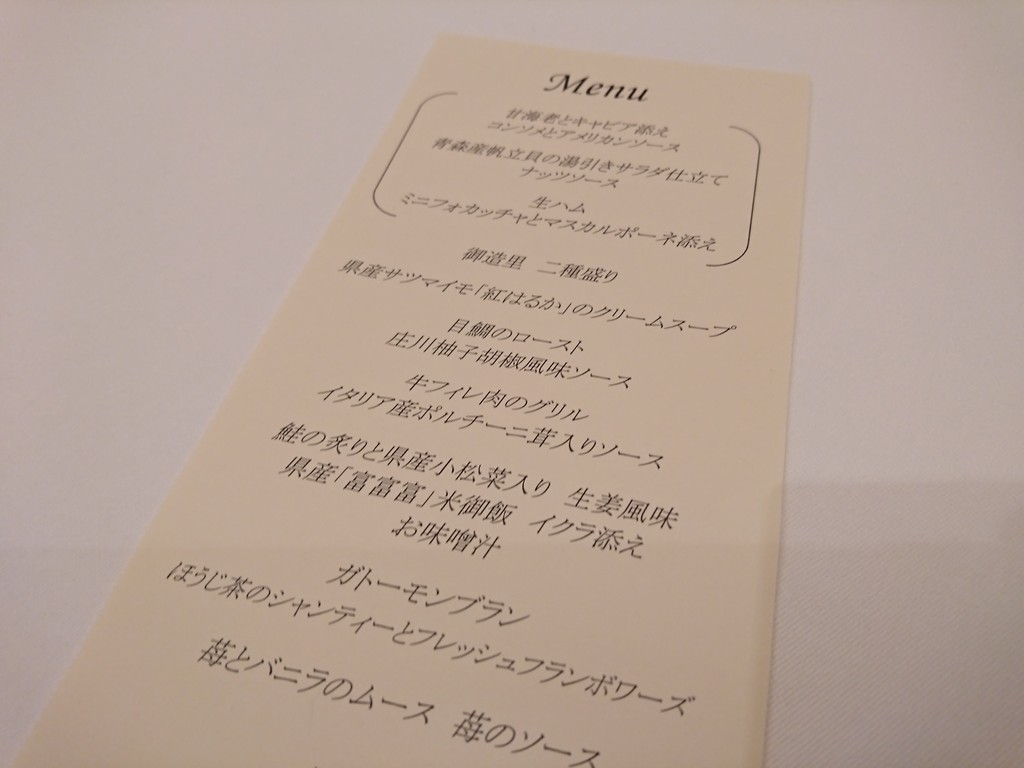 Menu
甘海老とキャビア添え
コンソメとアメリカンソース
青森産帆立貝の湯引きサラダ仕立て
ナッツソース
生ハム
ミニフォカッチャとマスカルポーネ添え
御造里 二種盛り
県産サツマイモ「紅はるか」のクリームスープ
目鯛のロースト
庄川柚子胡椒風味ソース
牛フィレ肉のグリル
イタリア産ポルチーニ茸入りソース
鮭の炙りと県産小松菜入り 生姜風味
県産「富富富」米御飯 イクラ添え
お味噌汁
ガトーモンブラン
ほうじ茶のシャンティーとフレッシュフランボワーズ
苺とバニラのムース 苺のソース